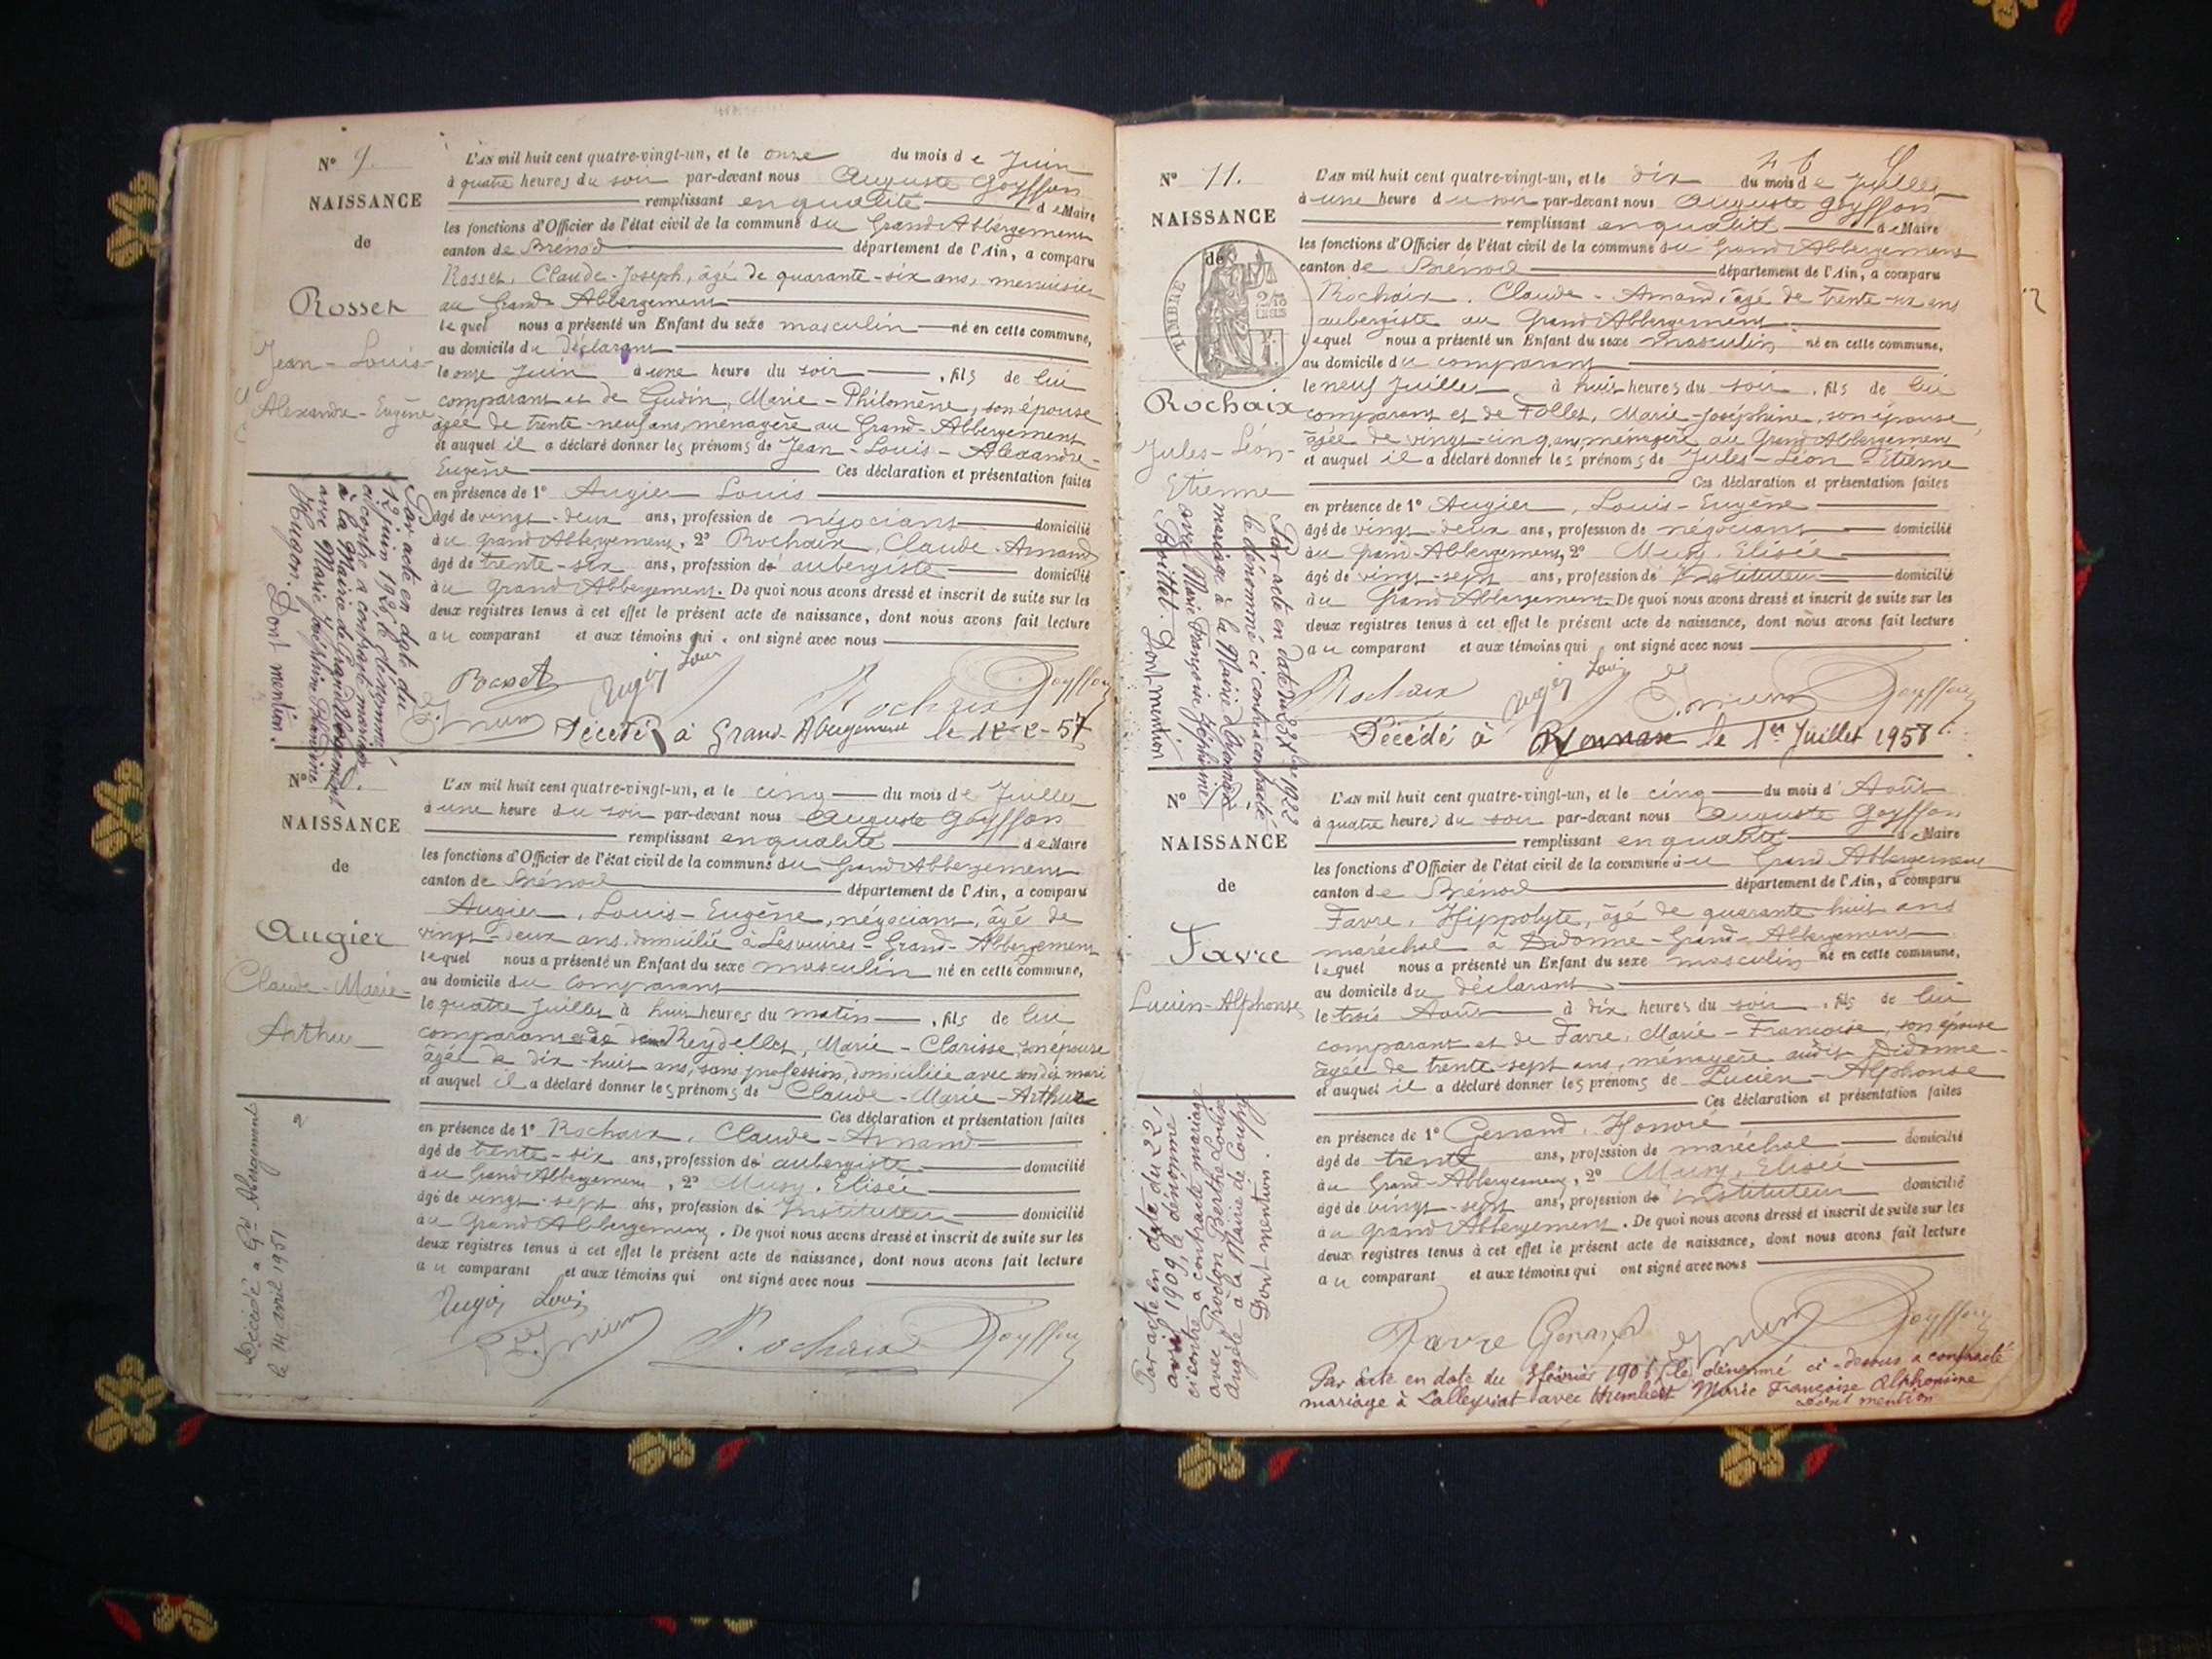 N° 9.
NAISSANCE
de
Rosset
Jean-Louis-
Alexandre-Eugène
L'AN mil huit cent quatre-vingt-un, et le onze du mois de Juin
à quatre heures du soir par-devant nous Auguste Goyffon
remplissant en qualité de Maire
les fonctions d'Officier de l'état civil de la commune du Grand Abbergement
canton de Brénod département de l'Ain, a comparu
Rosset, Claude-Joseph, âgé de quarante-six ans, menuisier
au Grand-Abbergement
lequel nous a présenté un Enfant du sexe masculin né en cette commune,
au domicile du déclarant
le onze Juin à une heure du soir, fils de lui
comparant et de Gudin, Marie-Philomène, son épouse
âgée de trente-neuf ans, ménagère au Grand-Abbergement
et auquel il a déclaré donner les prénoms de Jean-Louis-Alexandre-
Eugène Ces déclaration et présentation faites
en présence de 1° Augier Louis
âgé de vingt-deux ans, profession de négociant domicilié
au Grand Abbergement, 2° Rochaix, Claude-Amand
âgé de trente-six ans, profession de aubergiste domicilié
au Grand Abbergement. De quoi nous avons dressé et inscrit de suite sur les
deux registres tenus à cet effet le présent acte de naissance, dont nous avons fait lecture
au comparant et aux témoins qui ont signé avec nous
Rosset Augier Louis Rochaix Goyffon
Décédé à Grand Abergement le 12-2-57
Par acte en date du
12 juin 1920, le dénommé
ci contre a contracté mariage
à la Mairie de Grand Abergement
avec Marie Joséphine Blandine
Hugon. Dont mention.
N°
NAISSANCE
de
Augier
Claude-Marie-
Arthur
L'AN mil huit cent quatre-vingt-un, et le cinq du mois de Juillet
à une heure du soir par-devant nous Auguste Goyffon
remplissant en qualité de Maire
les fonctions d'Officier de l'état civil de la commune du Grand Abbergement
canton de Brénod département de l'Ain, a comparu
Augier, Louis-Eugène, négociant, âgé de
vingt-deux ans, domicilié à Lesvuires-Grand-Abbergement
lequel nous a présenté un Enfant du sexe masculin né en cette commune,
au domicile du comparant
le quatre Juillet à huit heures du matin, fils de lui
comparant et de Reydellet, Marie-Clarisse, son épouse
âgée de dix-huit ans, sans profession, domiciliée avec son dit mari
et auquel il a déclaré donner les prénoms de Claude-Marie-Arthur
Ces déclaration et présentation faites
en présence de 1° Rochaix, Claude-Amand
âgé de trente-six ans, profession de aubergiste domicilié
au Grand Abbergement, 2° Musy, Elisée
âgé de vingt-sept ans, profession de Instituteur domicilié
au Grand Abbergement. De quoi nous avons dressé et inscrit de suite sur les
deux registres tenus à cet effet le présent acte de naissance, dont nous avons fait lecture
au comparant et aux témoins qui ont signé avec nous
Augier Louis Rochaix Goyffon
Décédé à Gd Abergement
le 14 avril 1951
N° 11.
NAISSANCE
de
TIMBRE
Rochaix
Jules-Léon-
Etienne
L'AN mil huit cent quatre-vingt-un, et le dix du mois de Juillet
à une heure du soir par-devant nous Auguste Goyffon
remplissant en qualité de Maire
les fonctions d'Officier de l'état civil de la commune du Grand Abbergement
canton de Brénod département de l'Ain, a comparu
Rochaix, Claude-Amand, âgé de trente-six ans
aubergiste au Grand Abbergement
lequel nous a présenté un Enfant du sexe masculin né en cette commune,
au domicile du comparant
le neuf Juillet à huit heures du soir, fils de lui
comparant et de Follet, Marie-Joséphine, son épouse,
âgée de vingt-cinq ans, ménagère au Grand Abbergement
et auquel il a déclaré donner les prénoms de Jules-Léon-Etienne
Ces déclaration et présentation faites
en présence de 1° Augier, Louis-Eugène
âgé de vingt-deux ans, profession de négociant domicilié
au Grand-Abbergement, 2° Musy, Elisée
âgé de vingt-sept ans, profession de Instituteur domicilié
au Grand Abbergement. De quoi nous avons dressé et inscrit de suite sur les
deux registres tenus à cet effet le présent acte de naissance, dont nous avons fait lecture
au comparant et aux témoins qui ont signé avec nous
Rochaix Augier Louis Goyffon
Décédé à Oyonnax le 1er Juillet 1958
Par acte en date du 1922
le dénommé ci contre a contracté
mariage à la Mairie d'Oyonnax
avec Marie Françoise Joséphine
Dont mention
N°
NAISSANCE
de
Favre
Lucien-Alphonse
L'AN mil huit cent quatre-vingt-un, et le cinq du mois d'Août
à quatre heures du soir par-devant nous Auguste Goyffon
remplissant en qualité de Maire
les fonctions d'Officier de l'état civil de la commune du Grand Abbergement
canton de Brénod département de l'Ain, a comparu
Favre, Hippolyte, âgé de quarante-huit ans
maréchal à Didonne-Grand-Abbergement
lequel nous a présenté un Enfant du sexe masculin né en cette commune,
au domicile du déclarant
le trois Août à dix heures du soir, fils de lui
comparant et de Favre, Marie-Françoise, son épouse
âgée de trente-sept ans, ménagère audit Didonne-
et auquel il a déclaré donner les prénoms de Lucien-Alphonse
Ces déclaration et présentation faites
en présence de 1° Genand, Honoré
âgé de trente ans, profession de maréchal domicilié
au Grand-Abbergement, 2° Musy, Elisée
âgé de vingt-sept ans, profession de Instituteur domicilié
au Grand Abbergement. De quoi nous avons dressé et inscrit de suite sur les
deux registres tenus à cet effet le présent acte de naissance, dont nous avons fait lecture
au comparant et aux témoins qui ont signé avec nous
Favre Genand Goyffon
Par acte en date du février le dénommé ci-dessus a contracté
mariage à Lalleyriat avec Humbert Marie Françoise Alphonsine
Dont mention
Par acte en date du 22
avril 1909, le dénommé
ci contre a contracté mariage
avec Prodon Berthe Louise
Angèle à la Mairie de Coupy
Dont mention.